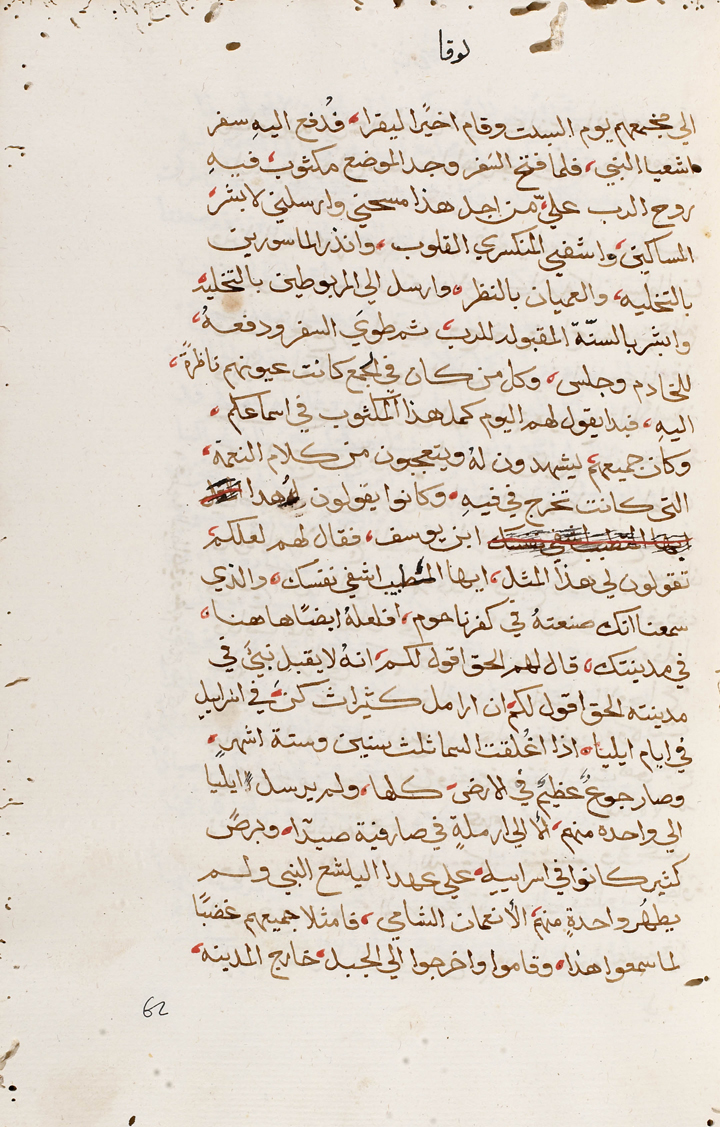 لوقا
الي مجمعهم يوم السبت وقام اخيرًا ليقرا، فدُفع اليهِ سفر
اشعيا النبي، فلما فتح السَفر وجد الموضع مكتوب فيهِ
روح الرب عليّ، من اجل هذا مسحني وارسلني لابشر
المساكين، واشفي المنكسري القلوب، وانذر الماسورين
بالتخليه، والعميان بالنظر، وارسل الي المربوطين بالتخليه
وابشر بالسنّة المقبوله للرب، ثم طوي السفر ودفعهُ،
للخادم وجلس، وكل من كان في الجمع كانت عيونهم ناظرةً،
اليهِ، فبدا يقول لهم اليوم كمل هذا المكتوب في اسماعكم،
وكان جميعهم يشهدون لهُ ويتعجبون من كلام النعمة،
التي كانت تخرج في فيهِ، وكانوا يقولون هذا
ايها المتطبب اشفي نفسك ابن يوسف، فقال لهم لعلكم
تقولون لي هذا المثل، ايها المتطبب اشفي نفسك، والذي
سمعنا انك صنعتهُ في كفرناحوم، افعلهُ ايضًا هاهنا،
في مدينتك، قال لهم الحق اقول لكم انهُ لا يقبل نبيٌ في
مدينته الحق اقول لكم ان ارامل كثيراث كنّ في اسراييل
في ايام ايليا، اذا اغُلقت السما ثلث سنين وستة اشهرٍ،
وصار جوعٌ عظيمٌ في الارض كلها، ولم يرسل ايليا
الي واحده منهم، الا الي ارملةٍ في صارفية صيدا، وبرصٌ
كثير كانوا في اسراييل، علي عهد اليشع النبي ولم
يطهُر واحدةٍ منهم الا نعمان الشامي، فامثلا جميعهم غضبًا
لما سمعوا هذا، وقاموا واخرجوا الي الجبل خارج المدينه،
62